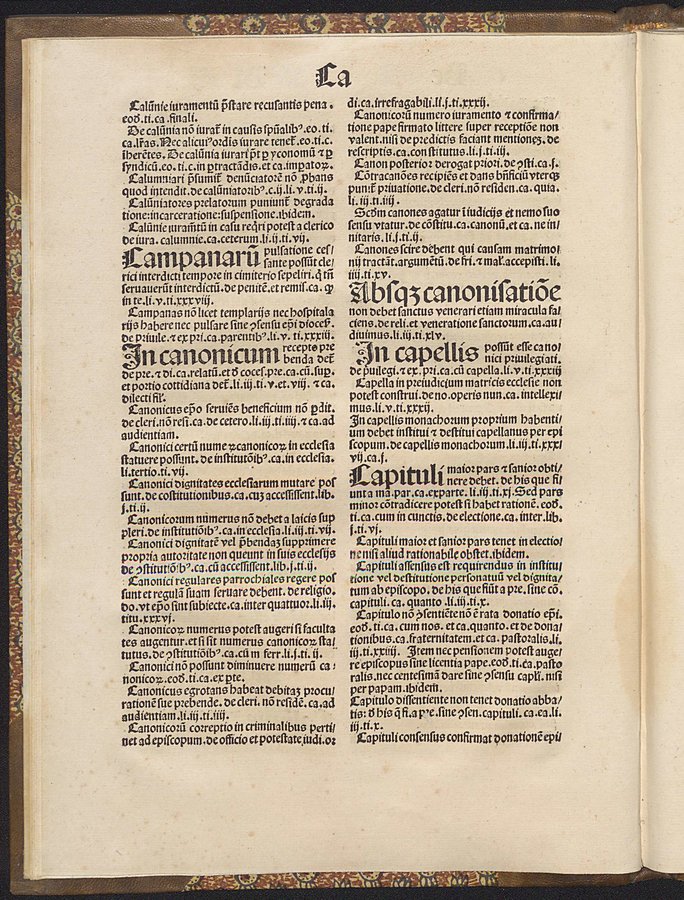 Ca
Calūnie iuramentū p̄stare recusantis pena.
eod̄.ti.ca.finali.
De calūnia nō iurat̄ in causis sp̄ualibꝰ.eo.ti.
ca.lr̄as. Nec alicuiꝰordīs iurare tenet̄.eo.ti.c.
iherētes. De calūnia iurari pōt ꝑ yconomū ⁊ ꝑ
syndicū.eo.ti.c.in ꝑtractādis.et ca.imꝑatoꝝ.
Calumniari p̄sumit̄ denūciatorē nō ꝓbans
quod intendit.de calūniatoribꝰ.c.ij.li.v.ti.ij.
Calūniatores prelatorum puniunt̄ degrada
tione:incarceratione:suspensione.ibidem.
Calūnie iuram̄tū in casu req̄ri potest a clerico
de iura. calumnie.ca.ceterum.li.ij.ti.vij.
Campanarū pulsatione ces/
sante possūt cle/
rici interdicti tempore in cimiterio sepeliri.q̄ tn̄
seruauerūt interdictū.de penitē.et remis.ca. ꝙ
in te.li.v.ti.xxxviij.
Campanas nō licet templarijs nec hospitala
rijs habere nec pulsare sine ꝯsensu ep̄i diocef̄.
de priuile.⁊ ex pri.ca.parentibꝰ.li.v.ti.xxxiij.
In canonicum recepto pre
benda det̄
de pre.⁊ di.ca.relatū.et d̄ coces.pre.ca.cū.suꝑ.
et portio cottidiana det̄.li.iij.ti.v.et.viij.⁊ ca.
dilecti fil̄.
Canonicus ep̄o seruiēs beneficium nō ꝑdit.
de cleri.nō resi.ca.de cetero.li.iij.ti.iiij.⁊ ca.ad
audientiam.
Canonici certū nume ꝝcanonicoꝝ in ecclesia
statuere possunt.de institutōibꝰ.ca.in ecclesia.
li.tertio.ti.vij.
Canonici dignitates ecclesiarum mutare pos
sunt.de costitutionibus.ca.cuꝫ accessissent.lib.
j.ti.ij.
Canonicorum numerus nō debet a laicis sup
pleri.de institutiōibꝰ.ca.in ecclesia.li.iij.ti.vij.
Canonici dignitatē vel p̄bendaꝫ supprimere
propria autoritate non queunt in suis ecclesijs
de ꝯstitutiōibꝰ.ca.cū accessissent.lib.j.ti.ij.
Canonici regulares parrochiales regere pos
sunt et regulā suam seruare debent.de religio.
do.vt ep̄o sint subiecte.ca.inter quattuor.li.iij.
titu.xxxvj.
Canonicoꝝ numerus potest augeri si faculta
tes augentur.et si sit numerus canonicoꝝ sta/
tutus.de ꝯstitutiōibꝰ.ca.cū m ferr.li.j.ti.ij.
Canonici nō possunt diminuere numerū ca/
nonicoꝝ.eod̄.ti.ca.ex ꝑte.
Canonicus egrotans habeat debitaꝫ procu/
rationē sue prebende.de cleri.nō residē.ca.ad
audientiam.li.iij.ti.iiij.
Canonicorū correptio in criminalibus perti/
net ad episcopum.de officio et potestate iudi.or
di.ca.irrefragabili.li.j.ti.xxxij.
Canonicorū numero iuramento ⁊ confirma/
tione pape firmato littere super receptiōe non
valent.nisi de predictis faciant mentioneꝫ.de
rescriptis.ca.constitutus.li.j.ti.iij.
Canon posterior derogat priori.de ꝯsti.ca.j.
Cōtracanōes recipiēs et dans bn̄ficiū vterqꝫ
punit̄ priuatione.de cleri.nō residen.ca. quia.
li.iij.ti.iiij.
Scd̄m canones agatur ī iudicijs et nemo suo
sensu vtatur.de cōstitu.ca.canonū.et ca.ne in/
nitaris.li.j.ti.ij.
Canones scire debent qui causam matrimo/
nij tractāt.argumētū.de fri.⁊ mal̄.accepisti.li.
iiij.ti.xv.
Absqꝫ canonisatiōe
non debet sanctus venerari etiam miracula fa/
ciens.de reli.et veneratione sanctorum.ca.au/
diuimus.li.iij.ti.xlv.
In capellis possūt esse cano/
nici priuilegiati.
de p̄uilegi.⁊ ex.pri.ca.cū capella.li.v.ti.xxxiij
Capella in preiudicium matricis ecclesie non
potest construi.de no.operis nun.ca. intellexi/
mus.li.v.ti.xxxij.
In capellis monachorum proprium habenti/
um debet institui ⁊ destitui capellanus per epi
scopum.de capellis monachorum.li.iij.ti.xxxj
vij.ca.j.
Capituli maior pars ⁊ sanior obti/
nere debet.de his que fi/
unt a ma.par.ca.exparte.li.iij.ti.xj. Sed pars
minor cōtradicere potest si habet rationē.eod̄.
ti.ca.cum in cunctis.de electione.ca.inter.lib.
j.ti.vj.
Capituli maior et sanior pars tenet in electio/
ne nisi aliud rationabile obstet.ibidem.
Capituli assensus est requirendus in institu/
tione vel destitutione personatuū vel dignita/
tum ab episcopo.de his que fiūt a pre.sine cō.
capituli.ca. quanto.li.iij.ti.x.
Capitulo nō ꝯsentiēte nō ē rata donatio ep̄i.
eod̄.ti.ca.cum nos.et ca.quanto.et de dona/
tionibus.ca.fraternitatem.et ca. pastoralis.li.
iij.ti.xxiiij. Item nec pensionem potest auge/
re episcopus sine licentia pape.eod̄.ti.ca.pasto
ralis.nec centesimā dare sine ꝯsensu capl̄i.nisi
per papam.ibidem.
Capitulo dissentiente non tenet donatio abba/
tis:d̄ his q̄ fi.a p̄e.sine ꝯsen.capituli.ca.ea.li.
iij.ti.x.
Capituli consensus confirmat donationē epi/